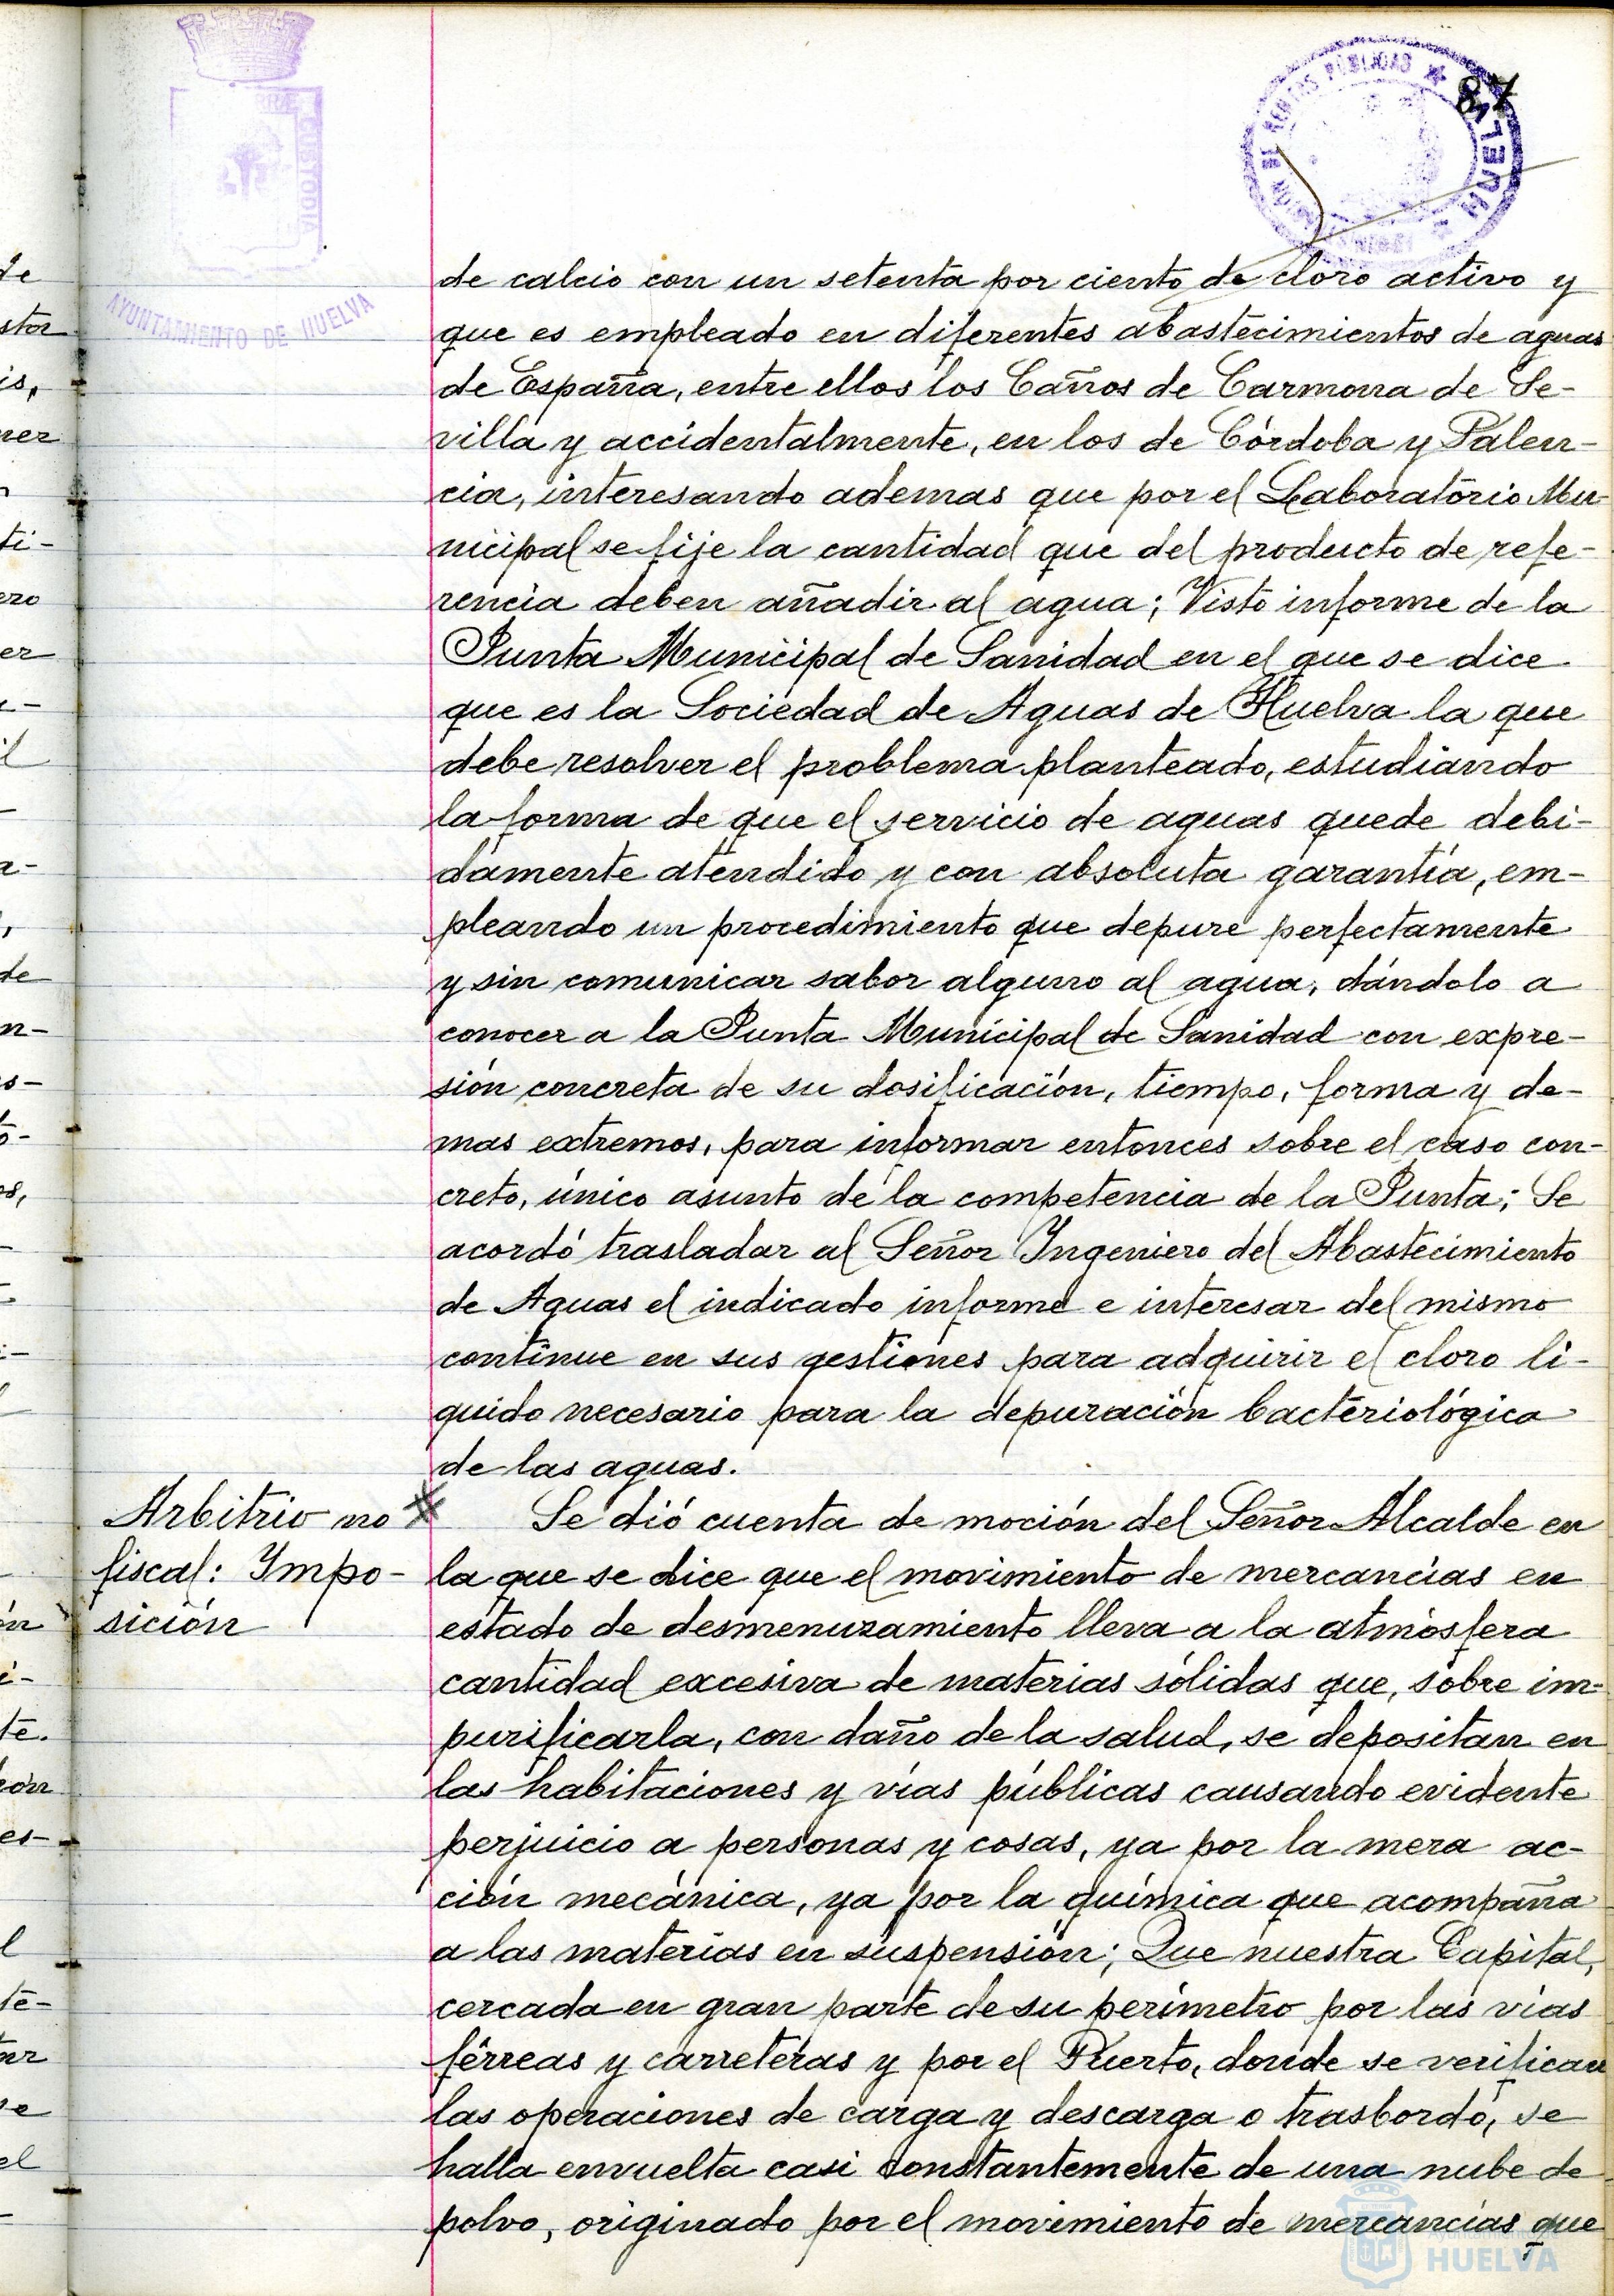 87
AYUNTAMIENTO DE HUELVA
CUSTODIA
PÚBLICAS
HUELVA
de calcio con un setenta por ciento de cloro activo y
que es empleado en diferentes abastecimientos de aguas
de España, entre ellos los Caños de Carmona de Se-
villa y accidentalmente, en los de Córdoba y Palen-
cia, interesando ademas que por el Laboratorio Mu-
nicipal se fije la cantidad que del producto de refe-
rencia deben añadir al agua; Visto informe de la
Junta Municipal de Sanidad en el que se dice
que es la Sociedad de Aguas de Huelva la que
debe resolver el problema planteado, estudiando
la forma de que el servicio de aguas quede debi-
damente atendido y con absoluta garantía, em-
pleando un procedimiento que depure perfectamente
y sin comunicar sabor alguno al agua, dándolo a
conocer a la Junta Municipal de Sanidad con expre-
sión concreta de su dosificación, tiempo, forma y de-
mas extremos, para informar entonces sobre el caso con-
creto, único asunto de la competencia de la Junta; Se
acordó trasladar al Señor Ingeniero del Abastecimiento
de Aguas el indicado informe e interesar del mismo
continue en sus gestiones para adquirir el cloro li-
quido necesario para la depuración bacteriológica
de las aguas.
Arbitrio no
fiscal: Impo-
sición
Se dió cuenta de moción del Señor Alcalde en
la que se dice que el movimiento de mercancías en
estado de desmenuzamiento lleva a la atmósfera
cantidad excesiva de materias sólidas que, sobre im-
purificarla, con daño de la salud, se depositan en
las habitaciones y vías públicas causando evidente
perjuicio a personas y cosas, ya por la mera ac-
ción mecánica, ya por la química que acompaña
a las materias en suspensión; Que nuestra Capital,
cercada en gran parte de su perímetro por las vías
férreas y carreteras y por el Puerto, donde se verifican
las operaciones de carga y descarga o trasbordo, se
halla envuelta casi constantemente de una nube de
polvo, originado por el movimiento de mercancías que
HUELVA